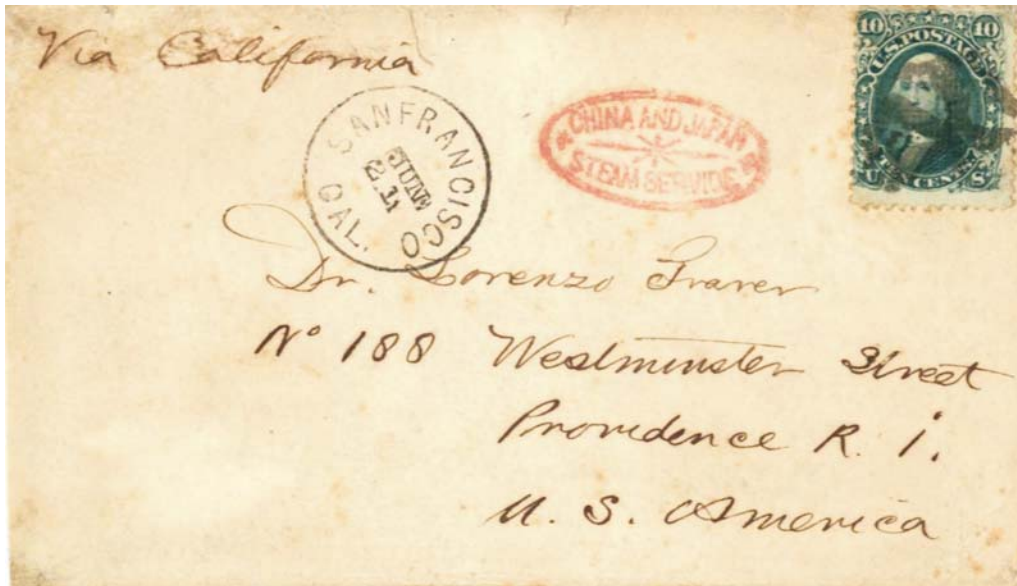 Via California
SAN FRANCISCO
JUN
21
CAL.
CHINA AND JAPAN
STEAM SERVICE
10 10
U.S. POSTAGE
TEN CENTS
U S
Dr. Lorenzo Traver
No 188 Westminster Street
Providence R. I.
U. S. America